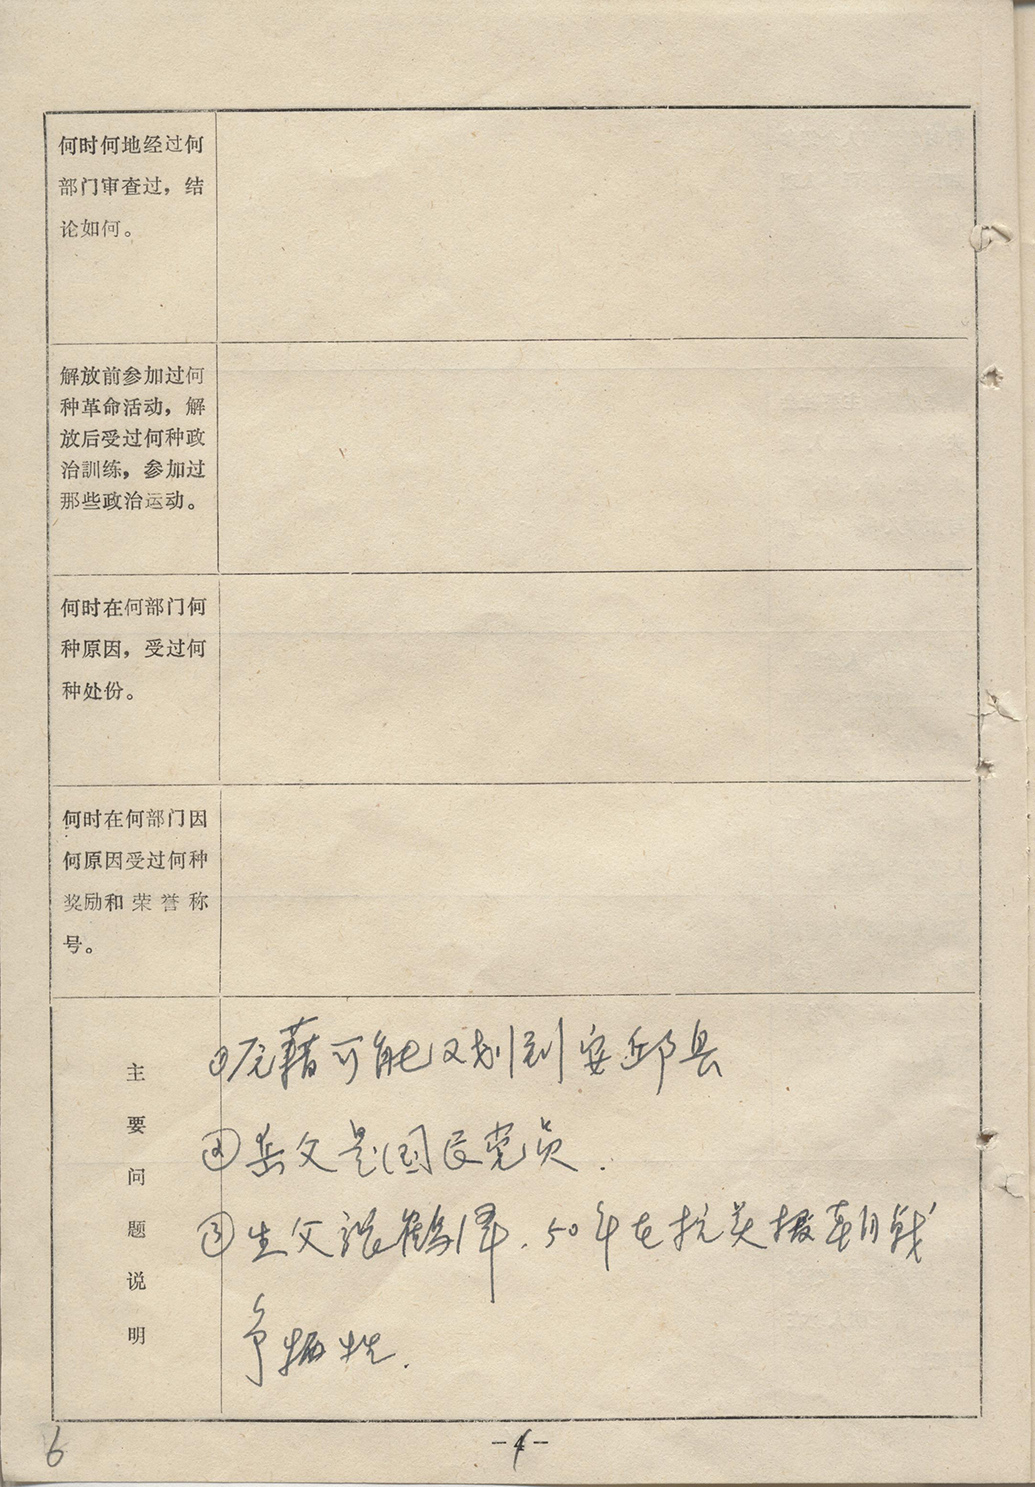 何时何地经过何
部门审查过，结
论如何。
解放前参加过何
种革命活动，解
放后受过何种政
治訓练，参加过
那些政治运动。
何时在何部门何
种原因，受过何
种处份。
何时在何部门因
何原因受过何种
奖励和荣誉称
号。
主要问题说明
①原藉可能又划到安邱县
②岳父是国民党员.
③生父张鹤.50年在抗美援朝战
争牺牲.
6
-4-